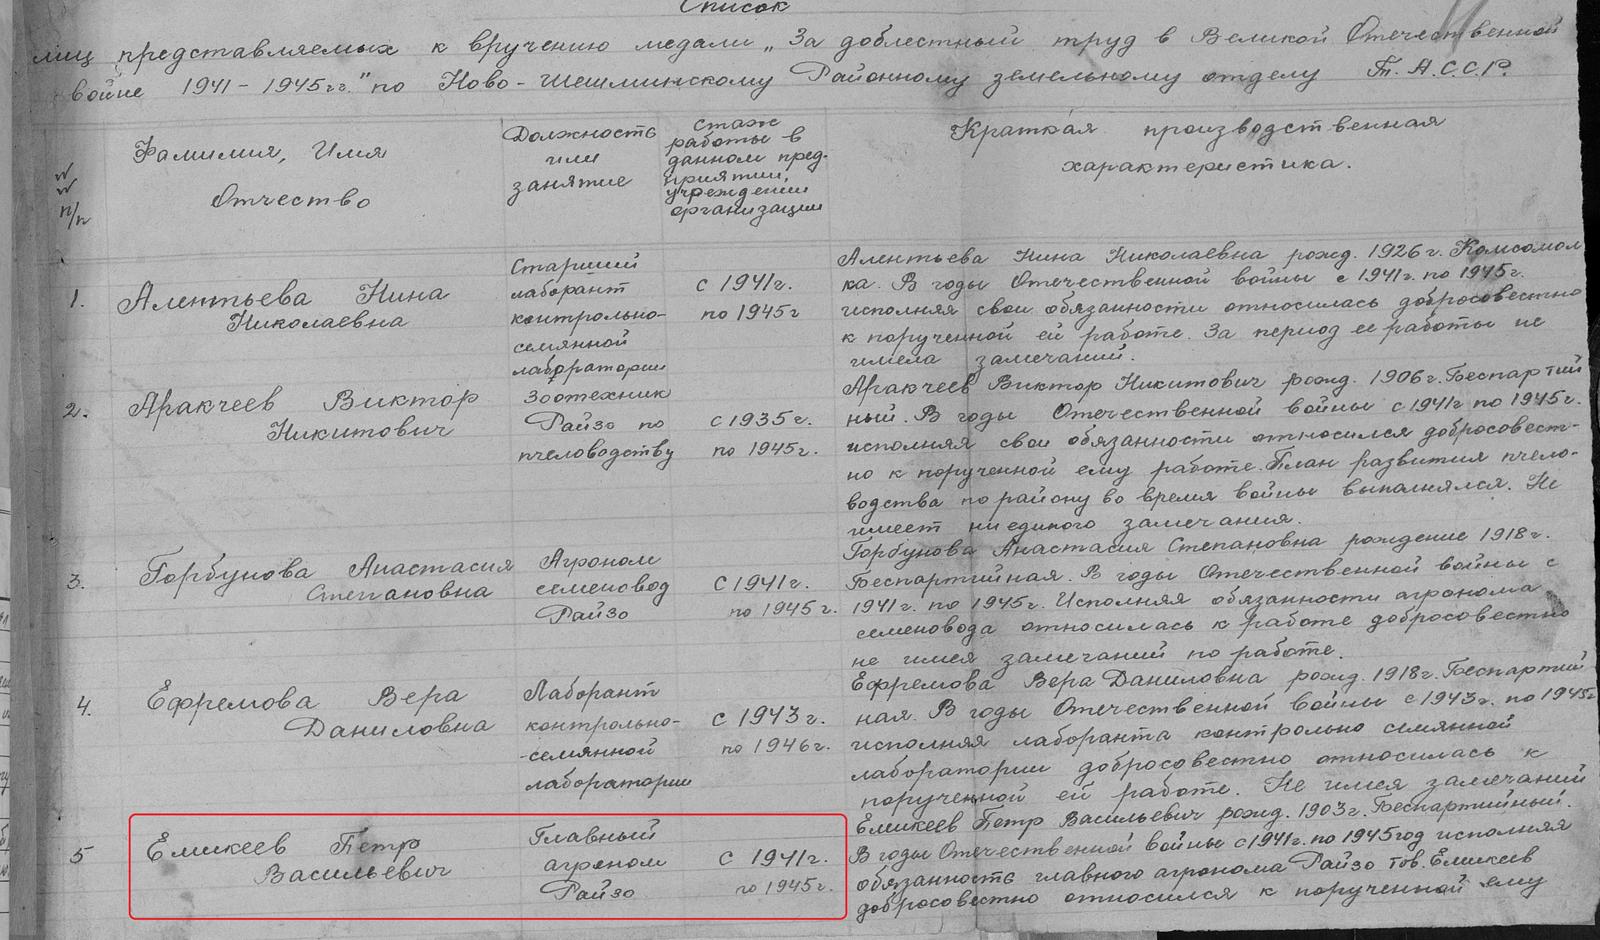 Список
лиц представляемых к вручению медали „За доблестный труд в Великой Отечественной
войне 1941-1945гг." по Ново-Шешминскому Районному земельному отделу Т.А.С.С.Р.
№№ п/п
Фамилия, Имя
Отчество
Должность
или
занятие
стаж
работы в
данном пред-
приятии,
учреждении
организации
Краткая производственная
характеристика.
1.
Алентьева Нина
Николаевна
Старший
лаборант
контрольно-
семянной
лаборатории
с 1941г.
по 1945г
Алентьева Нина Николаевна рожд. 1926г. Комсомол
ка. В годы Отечественной войны с 1941г. по 1945г.
исполняя свои обязанности относилась добросовестно
к порученной ей работе. За период ее работы не
имела замечаний.
2.
Аракчеев Виктор
Никитович
Зоотехник
Райзо по
пчеловодству
с 1935г.
по 1945г.
Аракчеев Виктор Никитович рожд. 1906г. Беспартий
ный. В годы Отечественной войны с 1941г по 1945г.
исполняя свои обязанности относился добросовест-
но к порученной ему работе. План развития пчело-
водства по району во время войны выполнялся. Не
имеет ниединого замечания.
3.
Горбунова Анастасия
Степановна
Агроном
семеновод
Райзо
с 1941г.
по 1945г.
Горбунова Анастасия Степановна рождение 1918г.
Беспартийная. В годы Отечественной войны с
1941г. по 1945г. Исполняя обязанности агронома
семеновода относилась к работе добросовестно
не имея замечаний по работе.
4.
Ефремова Вера
Даниловна
Лаборант
контрольно-
-семянной
лаборатории
с 1943г.
по 1946г.
Ефремова Вера Даниловна рожд. 1918г. Беспартий
ная. В годы Отечественной войны с 1943г. по 1945г
исполняя лаборанта контрольно семянной
лаборатории добросовестно относилась к
порученной ей работе. Не имея замечаний
5
Емикеев Петр
Васильевич
Главный
агроном
Райзо
с 1941г.
по 1945г.
Емикеев Петр Васильевич рожд. 1903г. Беспартийный.
В годы Отечественной войны с 1941г. по 1945год исполняя
обязанность главного агронома Райзо тов. Емикеев
добросовестно относился к порученной ему